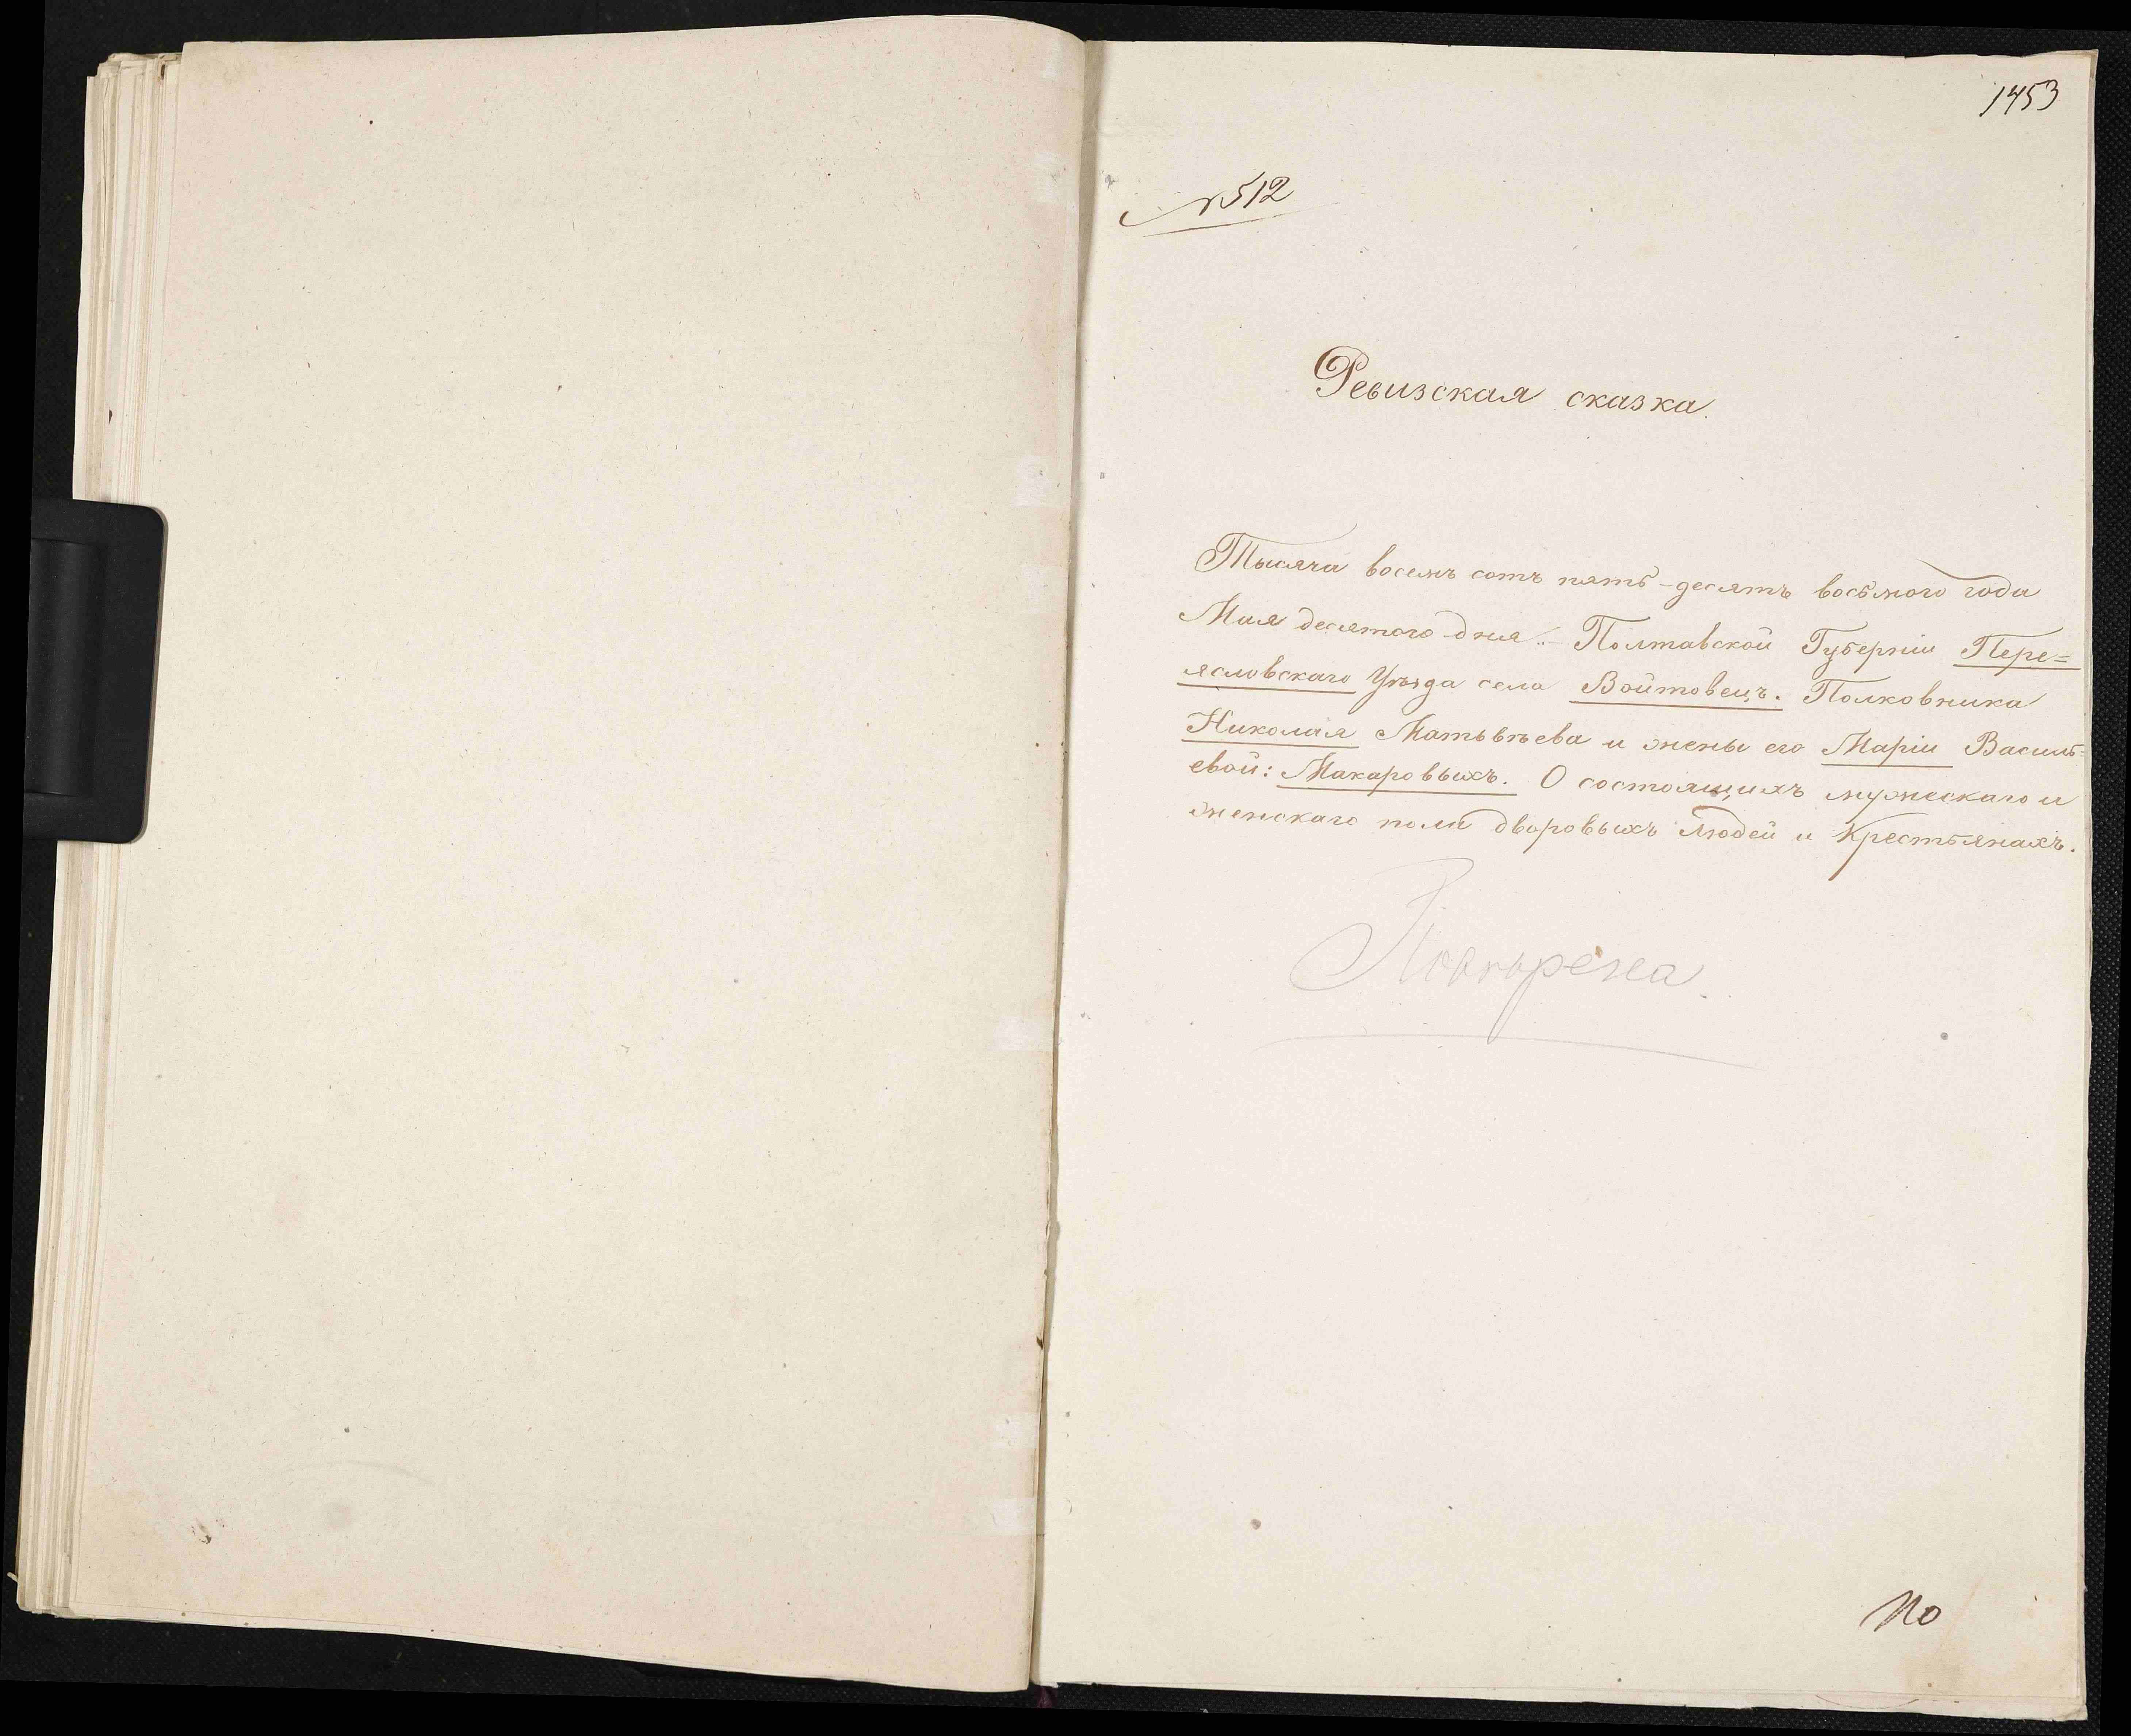 1453
№ 512
Ревизская сказка.
Тысяча восемь сотъ пять-десятъ восьмого года
Мая десятого дня. Полтавской Губерніи Пере=
ясловскаго Уѣзда села Войтовецъ. Полковника
Николая Матьвѣева и жены его Маріи Василь=
евой: Макаровыхъ. О состоящихъ мужескаго и
женскаго пола дворовыхъ людей и Крестьянахъ.
Повѣрена
По